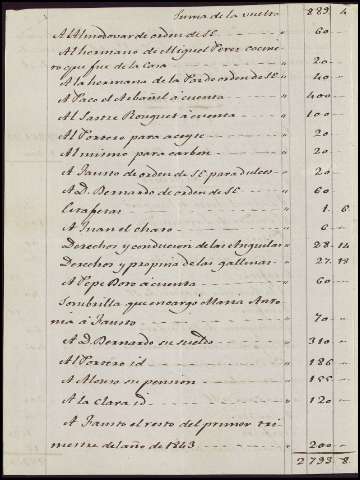 Suma de la vuelta - - - " 289. 4
A Almodovar de orden de SE - - - " 60 -
Al hermano de Miguel Perez cocine-
ro que fue de la Casa - - - " 20 -
A la hermana de la Pardo orden de SE " 40 -
A Paco el Albañil á cuenta - - - " 400 -
Al Sastre Rouget á cuenta - - - " 100 -
Al Portero para aceyte - - - " 20 -
Al mismo para carbon - - - " 20 -
A Fausto de orden de SE para dulces - " 20 -
A D. Bernardo de orden de SE - - - " 60 -
- - - " 1. 6
A Juan el charo - - - " 6 -
Derechos y conducion de las Anguilas " 28. 14
Derechos y propina de las gallinas - " 27. 18
A Pepe Boro a cuenta - - - " 60 -
Sombrilla que encargó Maria Anto-
nia á Fausto - - - " 70 -
A D. Bernardo su sueldo - - - " 310 -
Al Portero id - - - " 186 -
A Alonso su pension - - - " 155 -
A la Clara id - - - " 120 -
A Fausto el resto del primer tri-
mestre del año de 1843 - - - " 200 -
2793. 8.